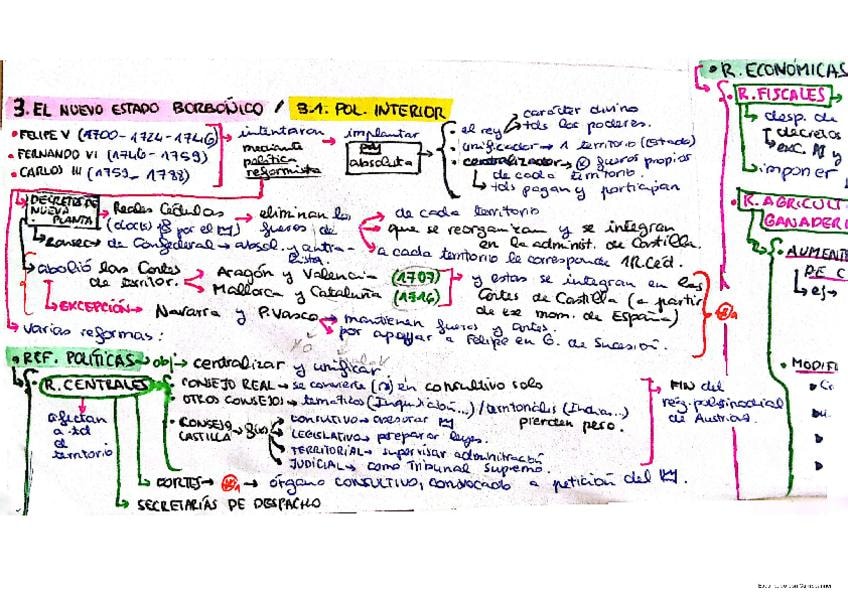 3. EL NUEVO ESTADO BORBÓNICO / 3.1. POL. INTERIOR
• FELIPE V (1700 - 1724 - 1746)
• FERNANDO VI (1746 - 1759)
• CARLOS III (1759 - 1788)
intentaron
mediante
política
reformista
implantar
absoluta
• el rey
carácter divino
tds los poderes.
• unificador → 1 territorio (Estado)
• centralizador → fueros propios
de cada territorio.
↳ tds pagan y participan
DECRETOS DE
NUEVA
PLANTA
→ Reales Cédulas → eliminan los
(docs) por el fueros de
→ de cada territorio
que se reorganizan y se integran
en la administ. de Castilla.
a cada territorio le corresponde 1 R.Céd.
de Confederal → absol. y
abolió las Cortes
de territor.
Aragón y Valencia (1707)
Mallorca y Cataluña (1716)
y estas se integran en las
Cortes de Castilla (a partir
de ese mom. de España)
↳ EXCEPCIÓN → Navarra y P. Vasco
mantienen fueros y
por apoyar a Felipe en G. de Sucesión.
→ varias reformas:
• REF. POLÍTICAS → obj → centralizar y unificar
R. CENTRALES
afectan
a td
el
territorio
• CONSEJO REAL → se convierte en consultivo solo
• OTROS CONSEJOS → temáticos (Inquisición...) / territoriales (Indias...)
pierden peso.
• CONSEJO
CASTILLA
CONSULTIVO → asesorar
LEGISLATIVO → preparar leyes.
TERRITORIAL → supervisar administración
JUDICIAL → como Tribunal Supremo.
FIN del
rég. polisinodial
de Austrias.
↳ CORTES → órgano CONSULTIVO, convocado a petición del
↳ SECRETARÍAS DE DESPACHO
• R. ECONÓMICAS
• R. FISCALES
desp. de
decretos
imponer
• R. AGRICULT
GANADER
• AUMENT
DE C
↳ ej →
• MODIF